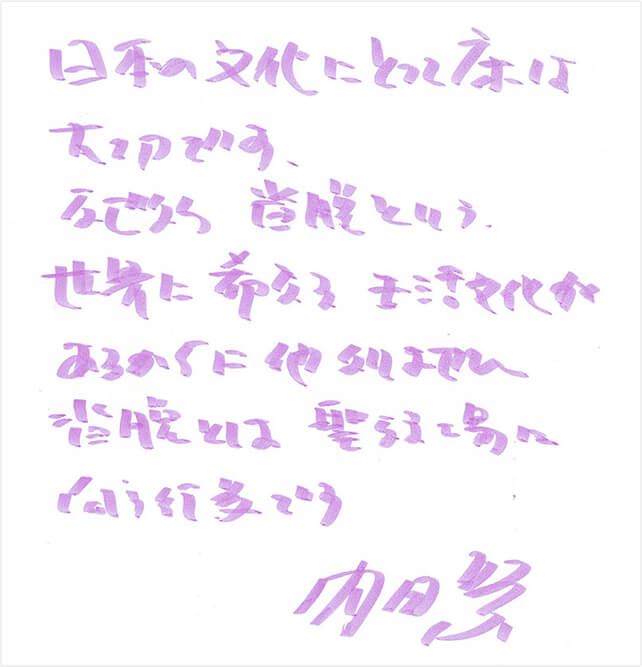 日本の文化にとって床は
大切です、
なぜなら 沓脱という、
世界に希なる 生活文化が
あるからに他なりません
沓脱とは 聖なる場に
向う行為です
内田繁